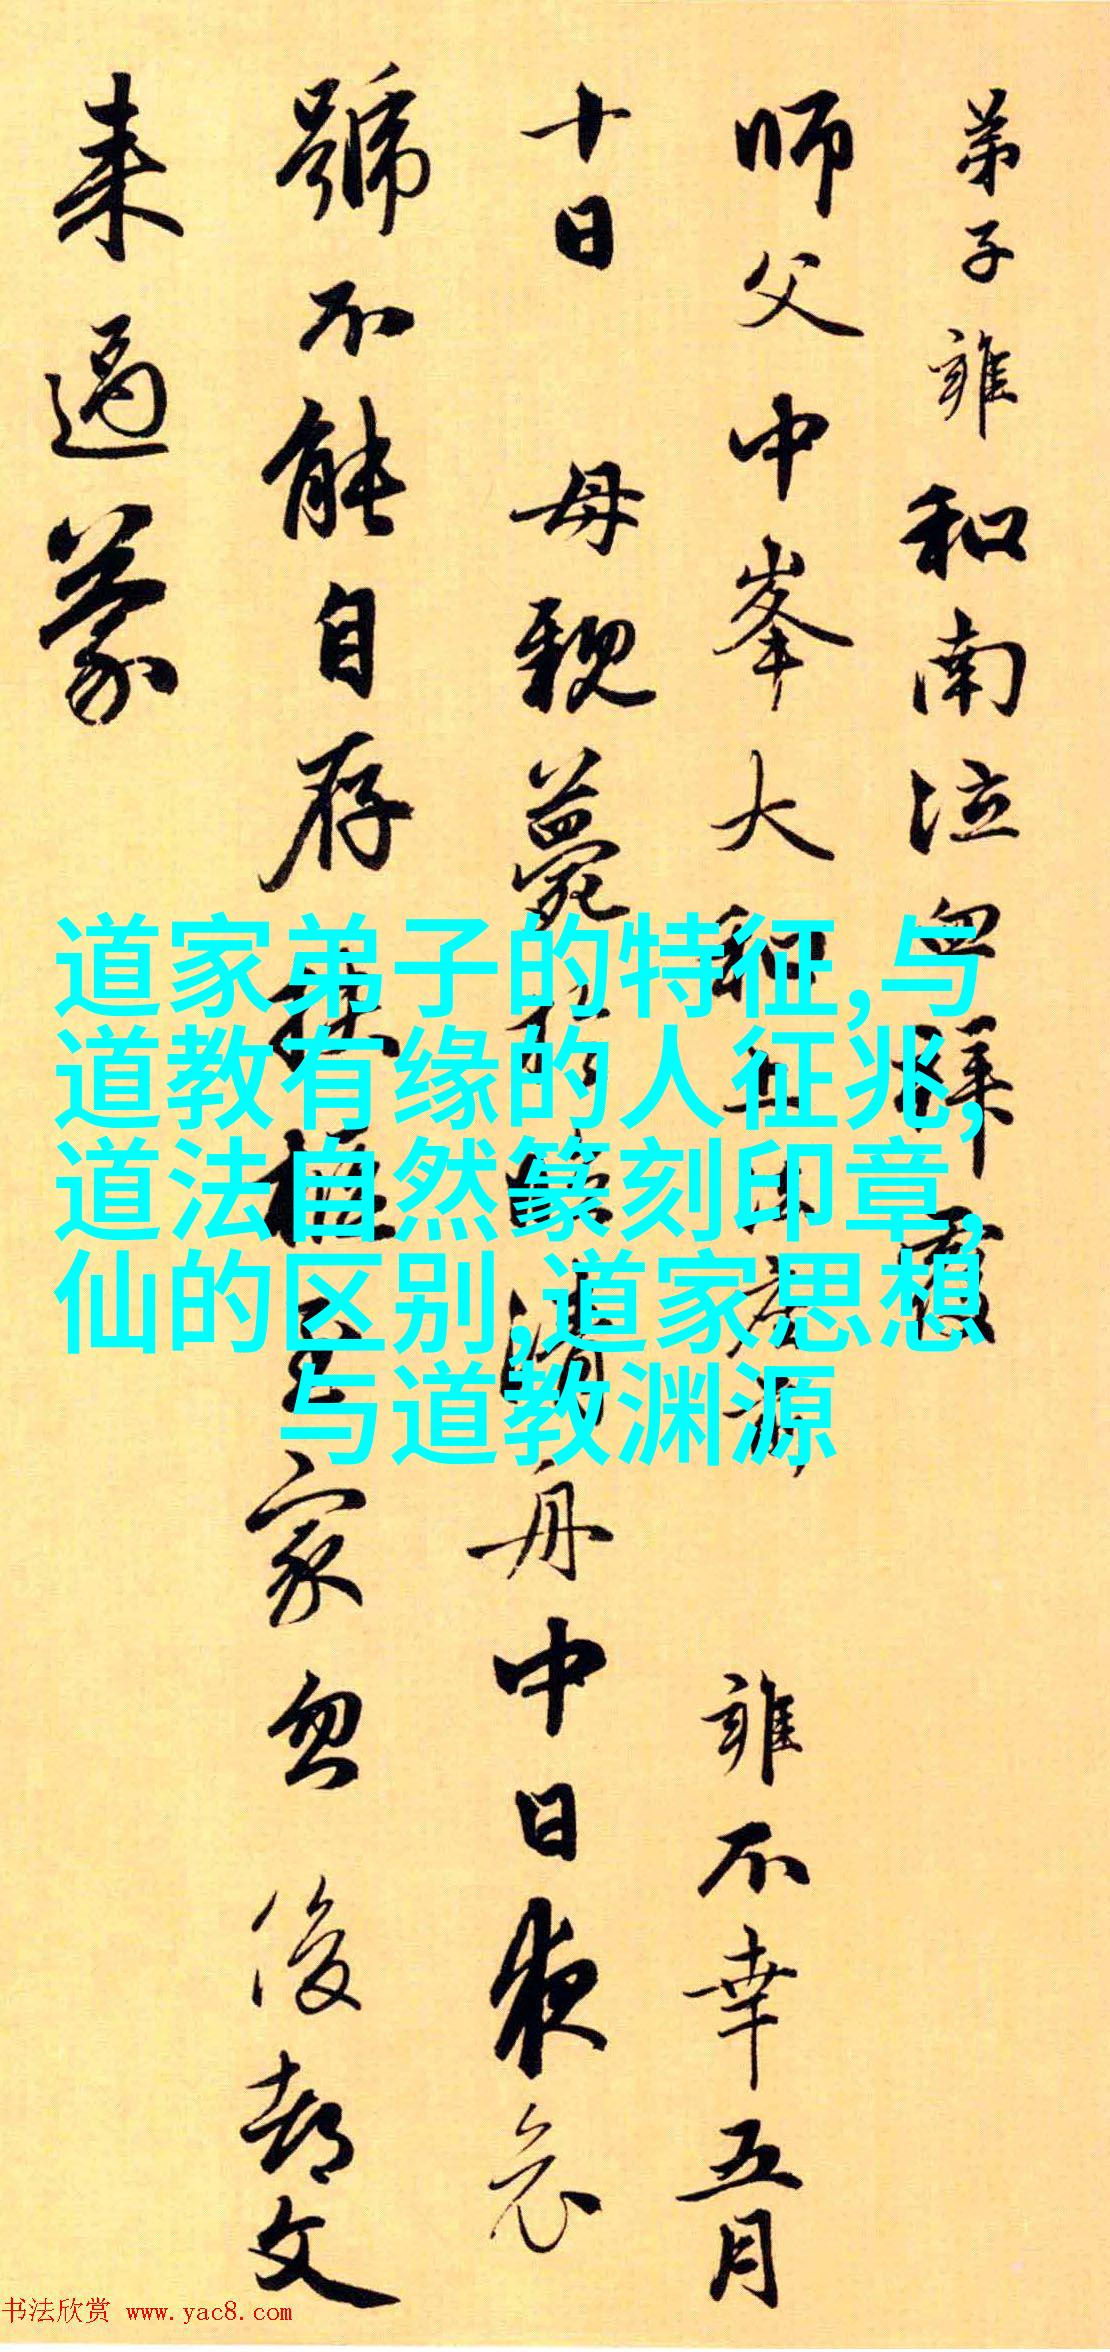 弟子雍和南泣血拜覆
師父中峯大和上法座前
雍不幸五月
十日 母親薨
舟中日夜哀
號不能自存
家忽 後都文
来過蒙
道家弟子的特征,与
道教有缘的人征兆,
道法自然篆刻印章,
仙的区别,道家思想
与道教渊源
书法欣赏 www.yac8.com